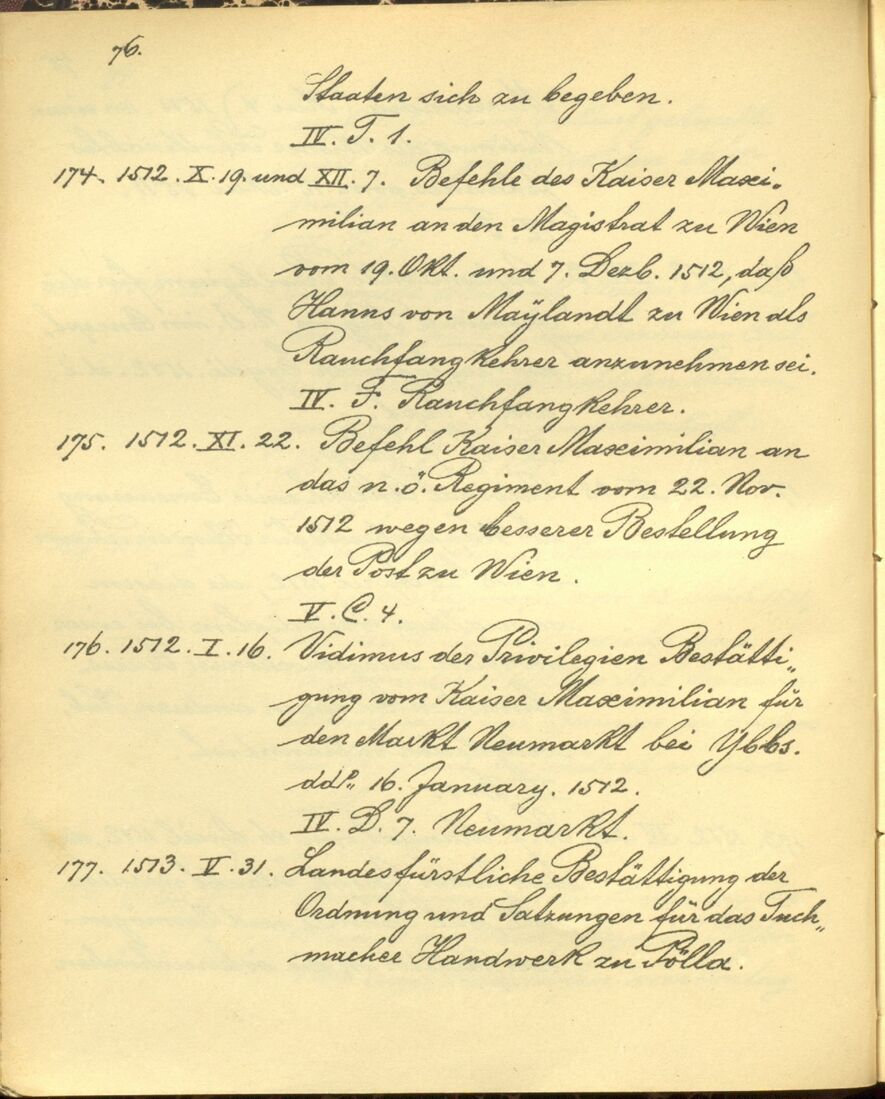 76.
Staaten sich zu begeben.
IV. T. 1.
174. 1512. X. 19. und XII. 7. Befehle des Kaiser Maxi-
milian an den Magistrat zu Wien
vom 19. Okt. und 7. Dezb. 1512, daß
Hanns von Maÿlandt zu Wien als
Rauchfangkehrer anzunehmen sei.
IV. F. Rauchfangkehrer.
175. 1512. XI. 22. Befehl Kaiser Maximilian an
das n. ö. Regiment vom 22. Nov.
1512 wegen besserer Bestellung
der Post zu Wien.
V. C. 4.
176. 1512. I. 16. Vidimus der Privilegien Bestätti„
gung vom Kaiser Maximilian für
den Markt Neumarkt bei Ybbs.
ddº„ 16. January. 1512.
IV. D. 7. Neumarkt.
177. 1513. V. 31. Landesfürstliche Bestättigung der
Ordnung und Satzungen für das Tuch„
macher Handwerk zu Pölla.